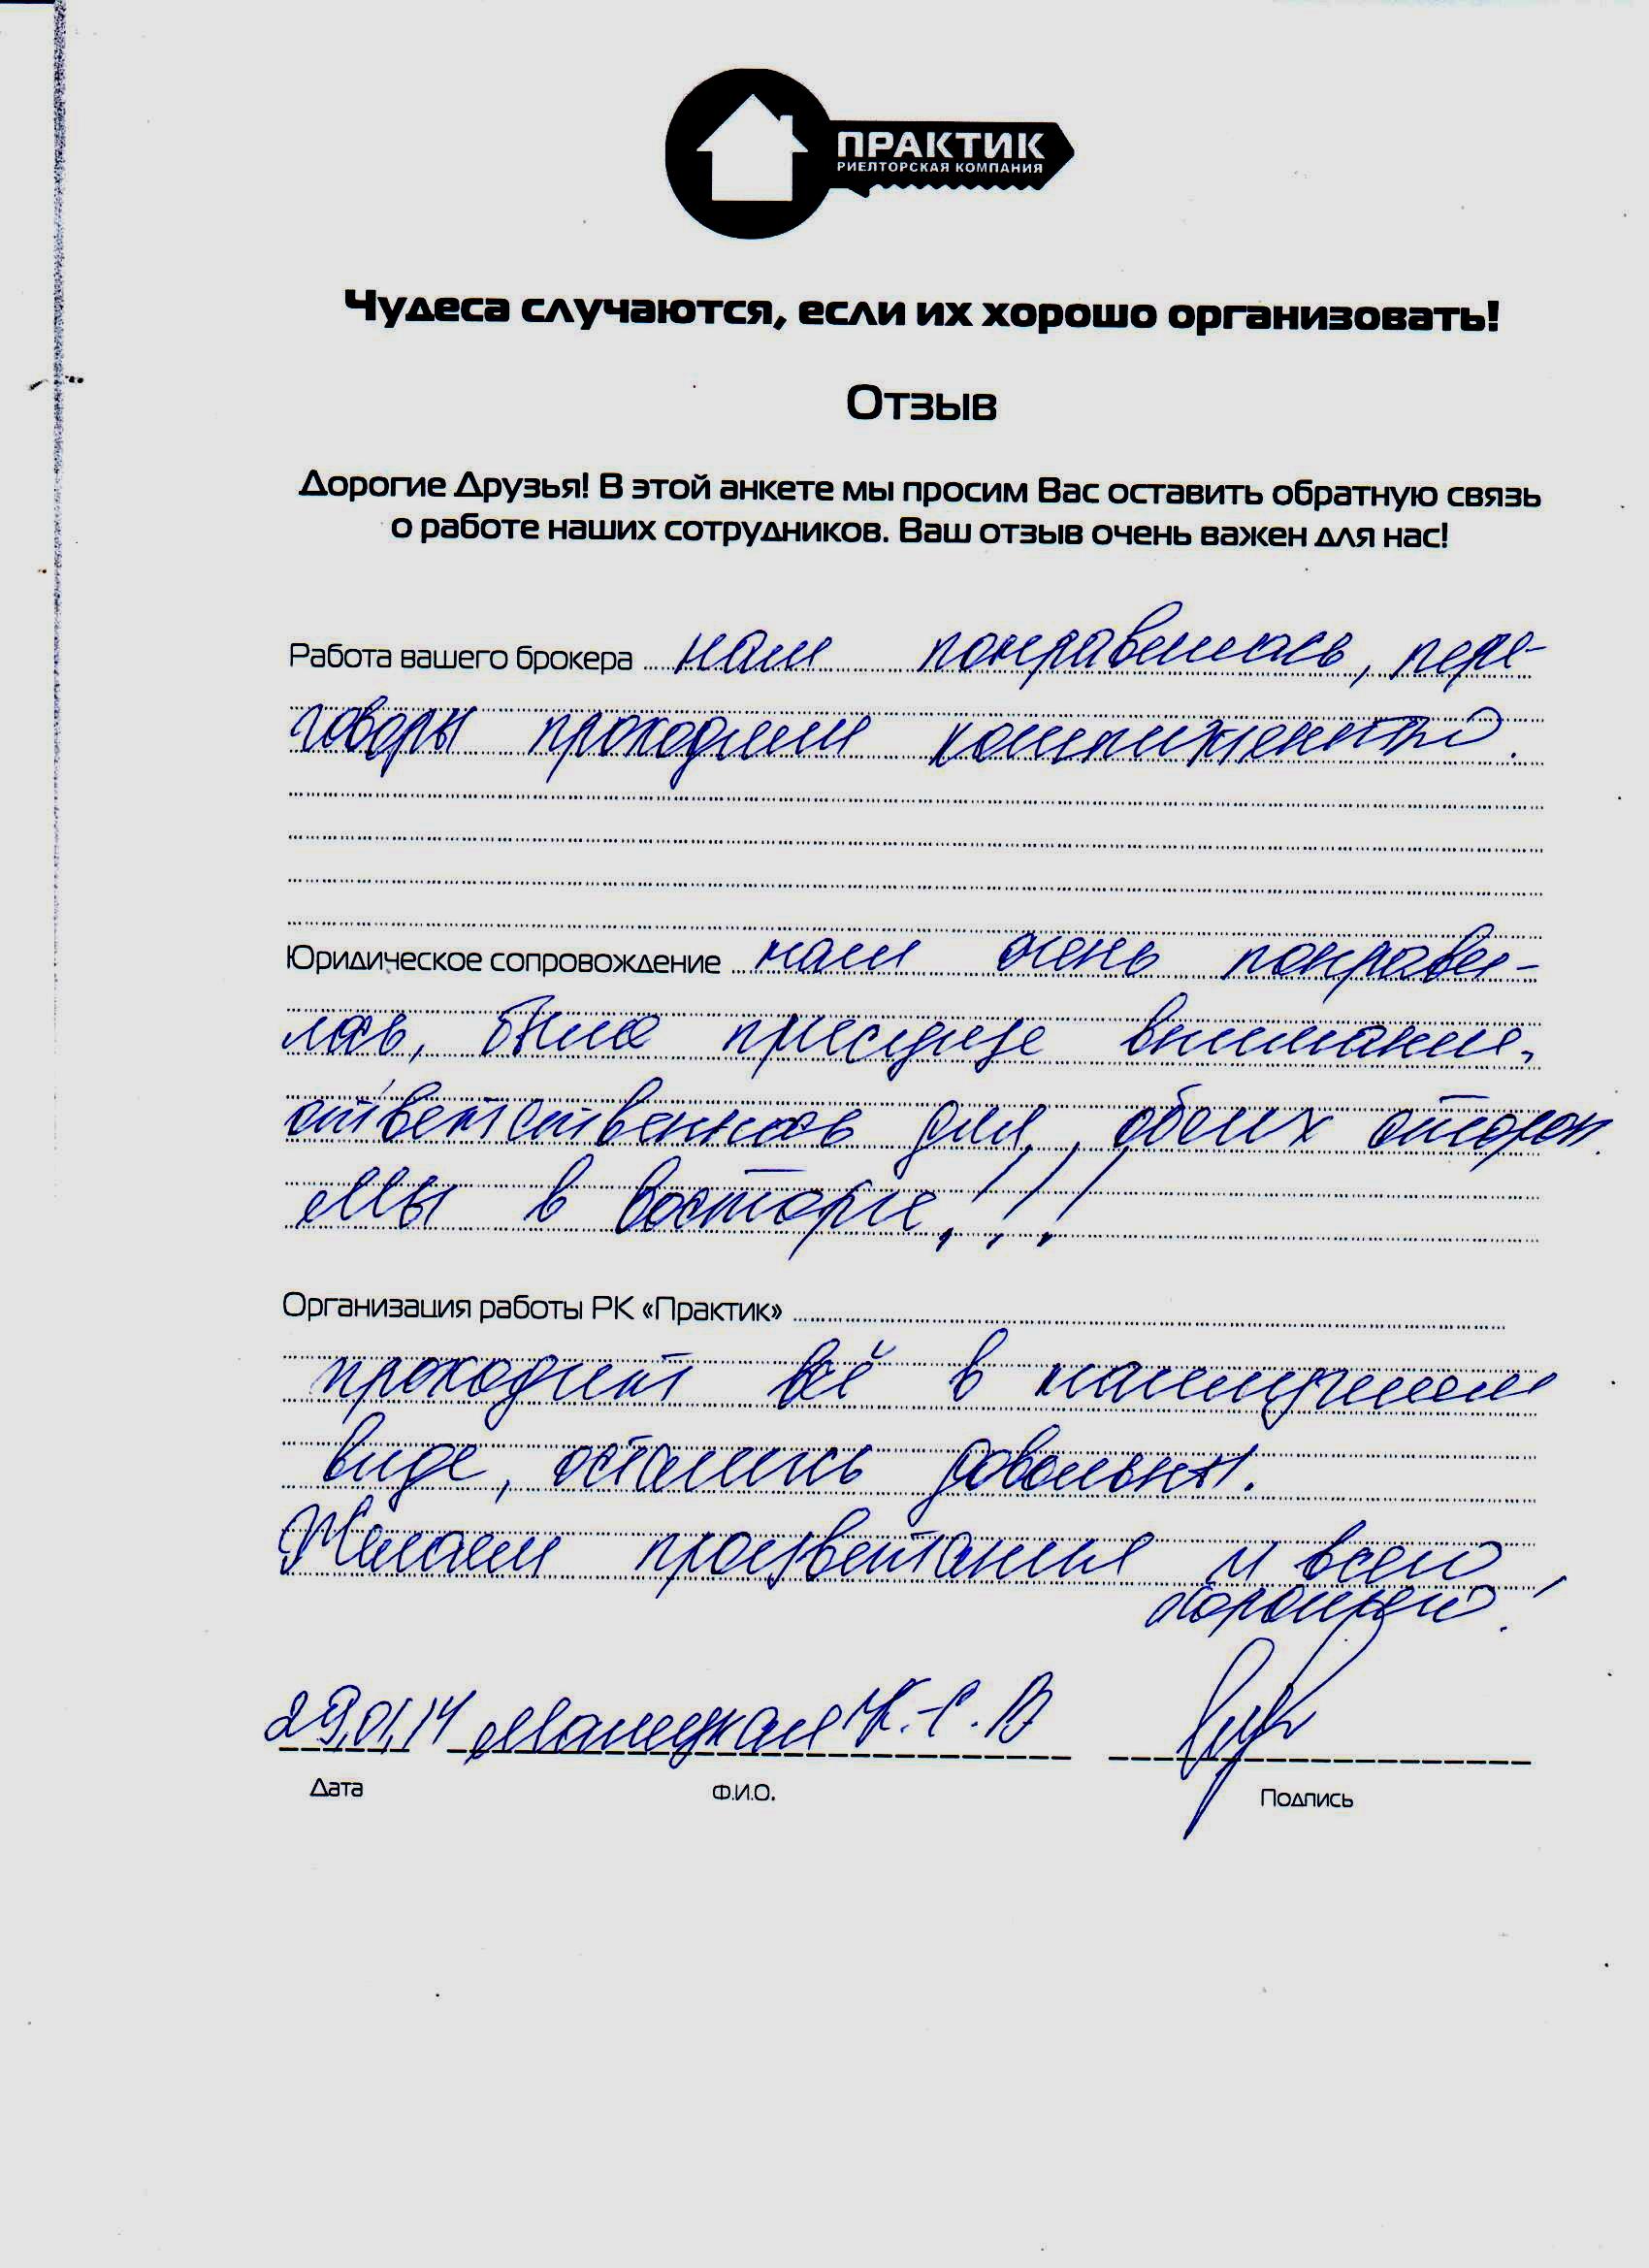 ПРАКТИК
РИЕЛТОРСКАЯ КОМПАНИЯ
Чудеса случаются, если их хорошо организовать!
Отзыв
Дорогие Друзья! В этой анкете мы просим Вас оставить обратную связь
о работе наших сотрудников. Ваш отзыв очень важен для нас!
Работа вашего брокера нам понравилась, пере-
говоры проходили
Юридическое сопровождение нам очень понрави-
лось, было внимание,
ответственность для обоих сторон.
Мы в восторге!!!
Организация работы РК «Практик»
проходит всё в наилучшем
виде, остались довольны.
Желаем процветания и всего
хорошего!
29.01.14
Дата Ф.И.О. Подпись